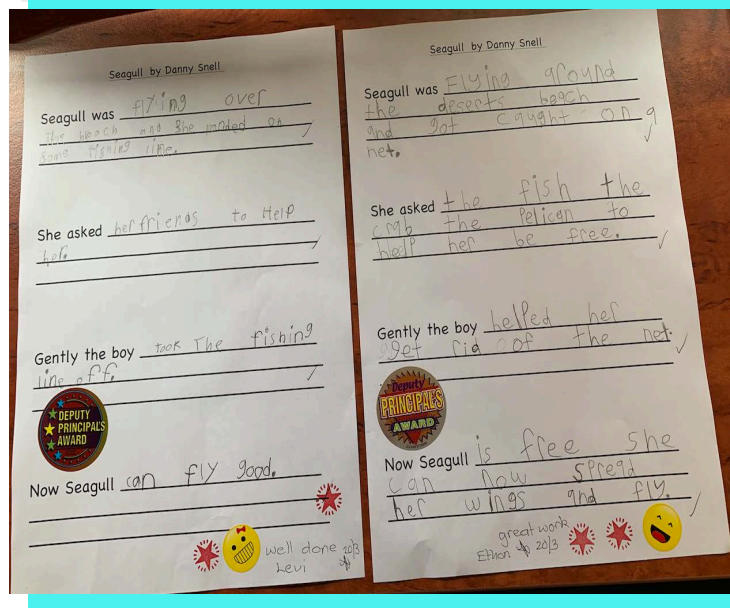 Seagull by Danny Snell
Seagull was flying over
the beach and she landed on
some fishing line.
She asked her friends to Help
her.
Gently the boy took The fishing
line off.
DEPUTY
PRINCIPAL'S
AWARD
Now Seagull can fly good.
well done 20/3
Levi
Seagull by Danny Snell
Seagull was Flying around
the deserts beach
and got caught on a
net.
She asked the fish the
crab the Pelican to
help her be free.
Gently the boy helped her
get rid of the net.
Deputy
PRINCIPAL'S
AWARD
Now Seagull is free she
can now spread
her wings and fly.
great work
Ethan 20/3